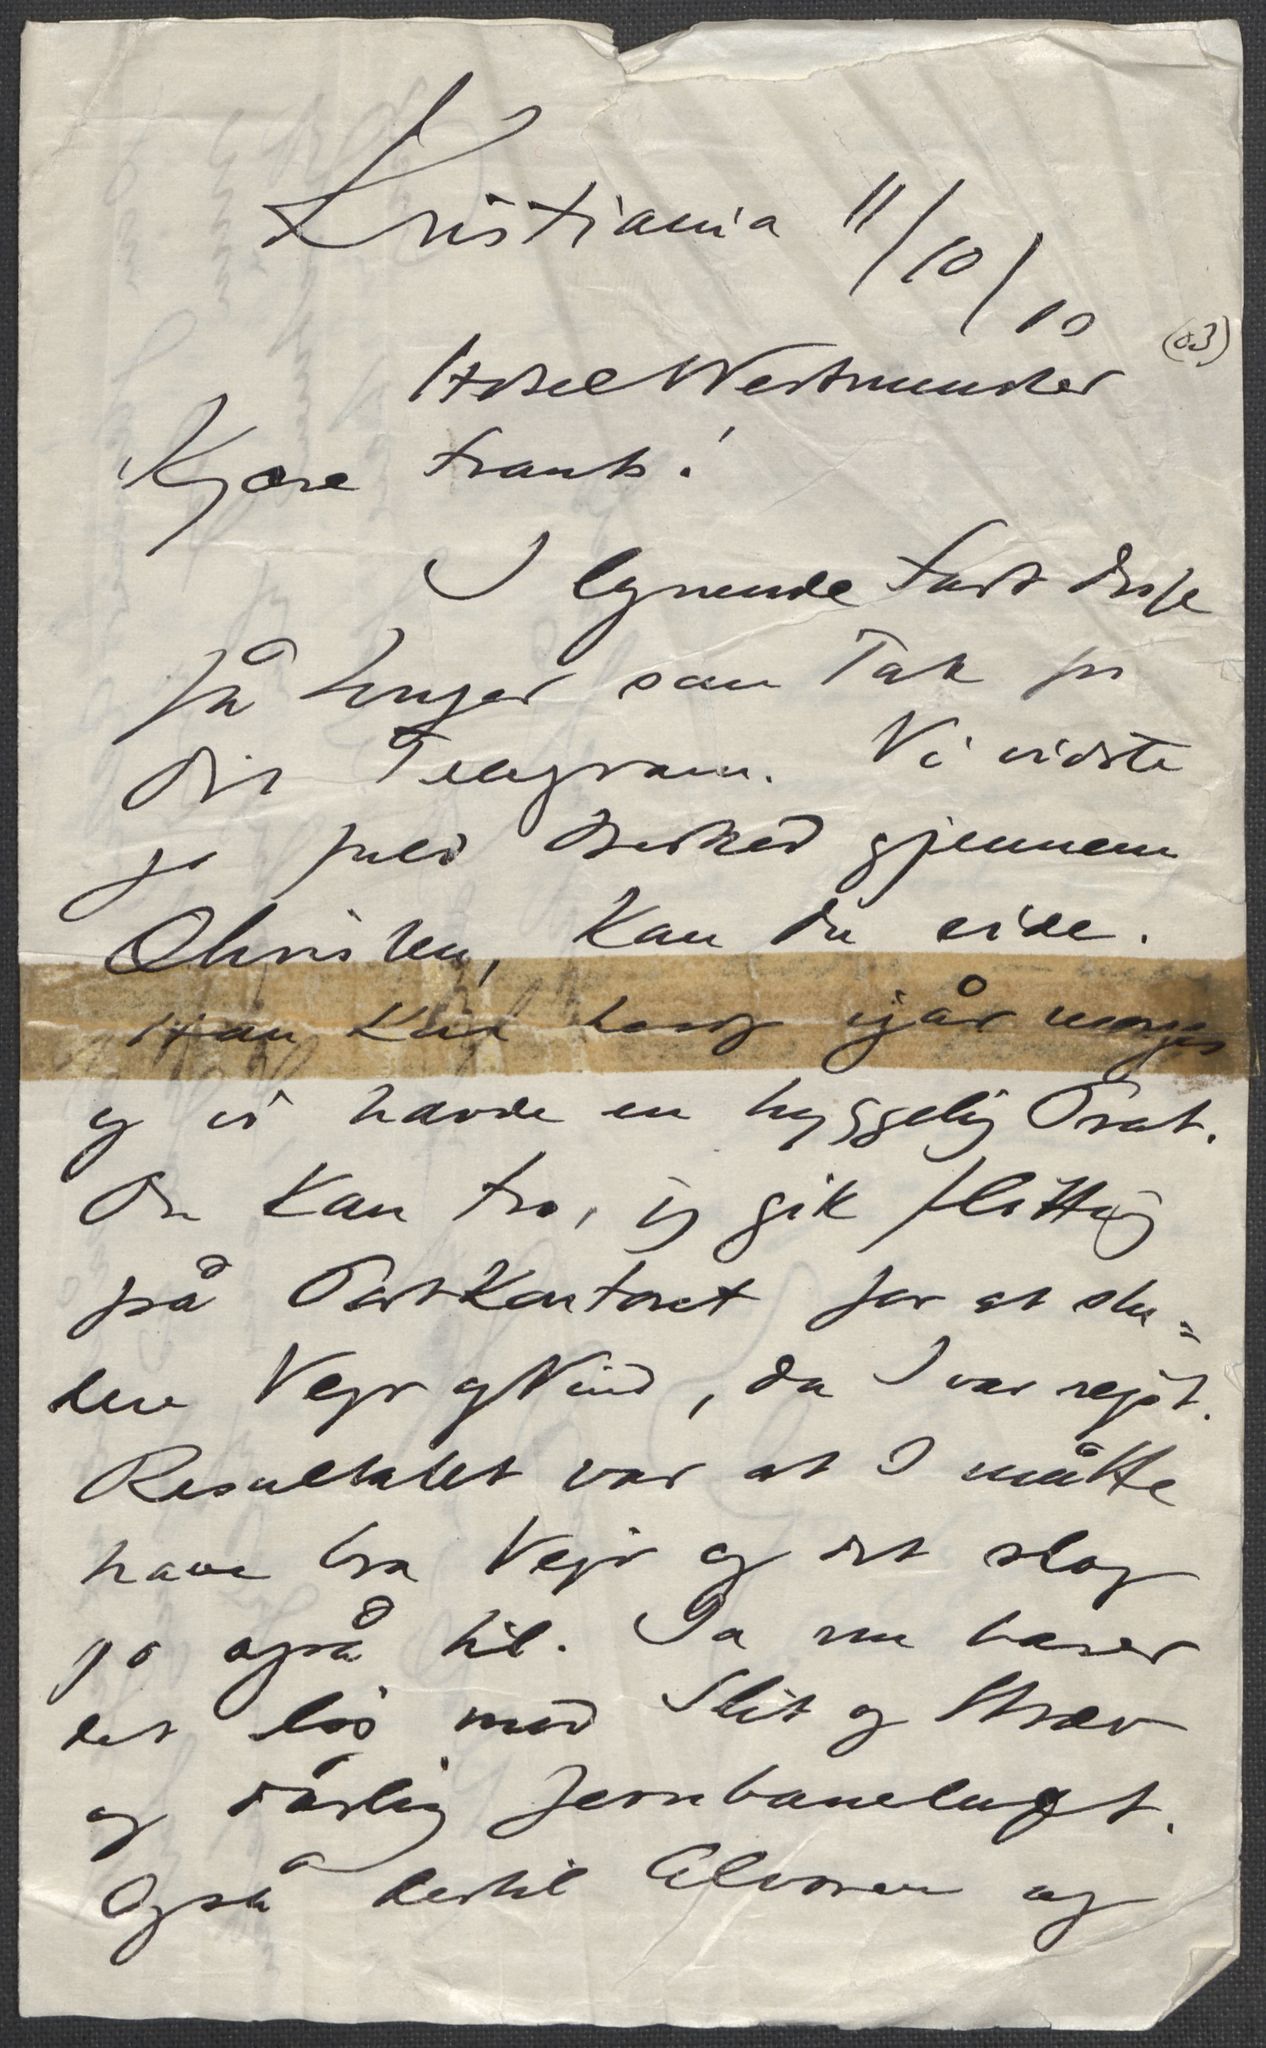 Kristiania 11/10/10
(83)
Hotel Westminster
Kjære Frants!
I lynende Fart disse
få Linjer som Tak for
dit Telegram. Vi vidste
jo fuld Besked gjennem
Christen, kan du vide.
Han kom hersov igår morges
og vi havde en hyggelig Prat.
Du kan tro, jeg gik flittig
på Postkontoret for at stu=
dere Vejr og Vind, da I var rejst.
Resultatet var at I måtte
have bra Vejr og det slog
jo også til. Ja nu bærer
det løs med Slit og Stræv
og dårlig Jernbaneluft.
Også dertil Alvoren og